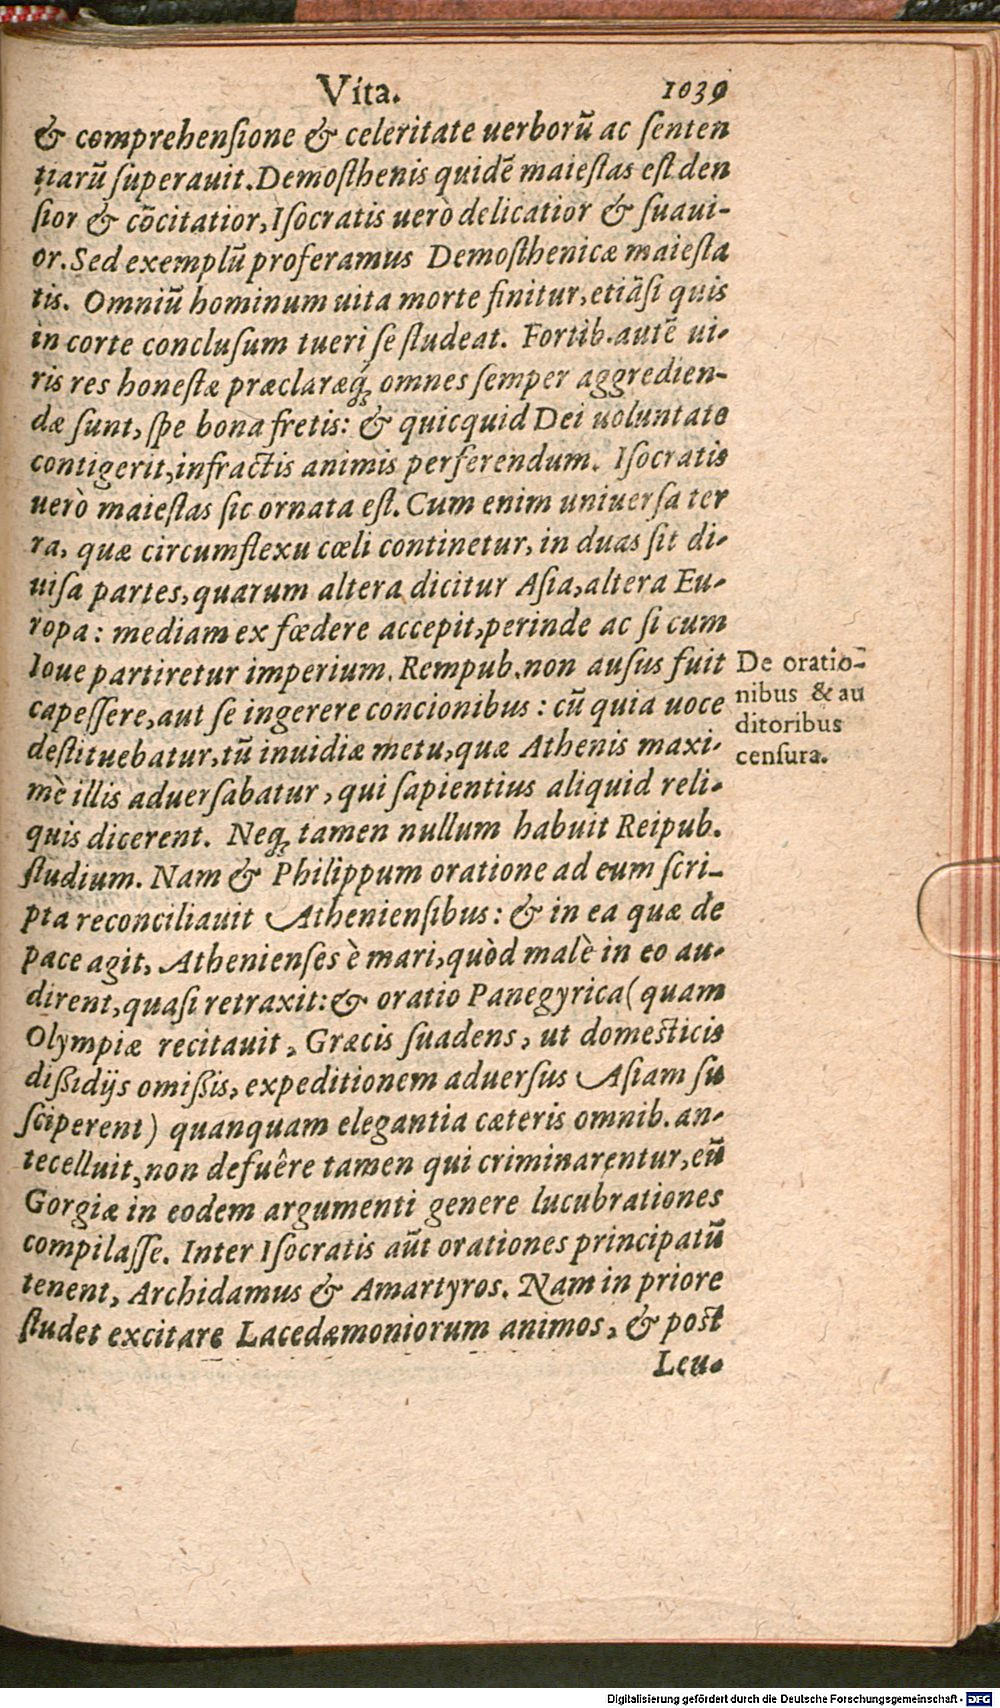 Vita. 1039
& comprehenſione & celeritate uerborū ac ſenten
tiarū ſuperauit. Demoſthenis quidē maieſtas eſt den
ſior & cōcitatior, Iſocratis uerò delicatior & ſuaui-
or. Sed exemplū proferamus Demoſthenicæ maieſta
tis. Omniū hominum uita morte finitur, etiāſi quis
in corte concluſum tueri ſe ſtudeat. Fortib. autē ui-
ris res honeſtæ præclaræq́ꝫ omnes ſemper aggredien-
dæ ſunt, ſpe bona fretis: & quicquid Dei uoluntate
contigerit, infractis animis perferendum. Iſocratis
uerò maieſtas ſic ornata eſt. Cum enim uniuerſa ter
ra, quæ circumflexu cœli continetur, in duas ſit di-
uiſa partes, quarum altera dicitur Aſia, altera Eu-
ropa: mediam ex fœdere accepit, perinde ac ſi cum
Ioue partiretur imperium. Rempub. non auſus fuit
capeſſere, aut ſe ingerere concionibus: cū quia uoce
deſtituebatur, tū inuidiæ metu, quæ Athenis maxi-
mè illis aduerſabatur, qui ſapientius aliquid reli-
quis dicerent. Neqꝫ tamen nullum habuit Reipub.
ſtudium. Nam & Philippum oratione ad eum ſcri-
pta reconciliauit Athenienſibus: & in ea quæ de
pace agit, Athenienſes è mari, quòd malè in eo au-
dirent, quaſi retraxit: & oratio Panegyrica (quam
Olympiæ recitauit, Græcis ſuadens, ut domeſticis
diſſidijs omiſſis, expeditionem aduerſus Aſiam ſu
ſciperent) quanquam elegantia cæteris omnib. an-
tecelluit, non defuêre tamen qui criminarentur, eū
Gorgiæ in eodem argumenti genere lucubrationes
compilaſſe. Inter Iſocratis aūt orationes principatū
tenent, Archidamus & Amartyros. Nam in priore
ſtudet excitare Lacedæmoniorum animos, & poſt
Leu-
De oratio-
nibus & au
ditoribus
cenſura.
Digitalisierung gefördert durch die Deutsche Forschungsgemeinschaft - DFG